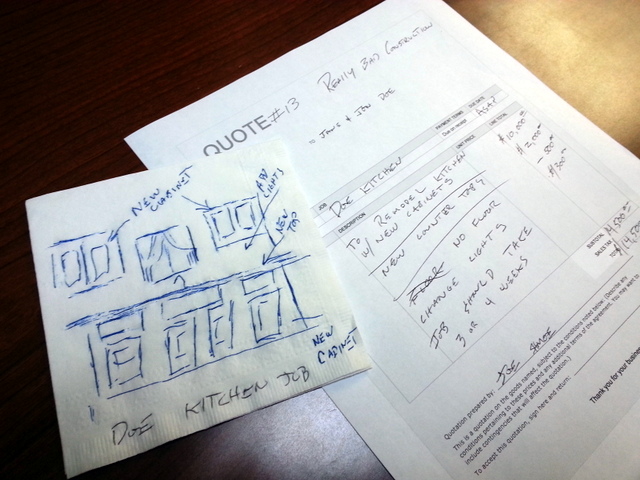 NEW CABINET
ADD LIGHTS
NEW TOP
NEW CABINET
DOE KITCHEN JOB
QUOTE #13 REALLY BAD CONSTRUCTION
JANE & JAN DOE
PAYMENT TERMS DUE DATE
Due on receipt ASAP
JOB DOE KITCHEN
DESCRIPTION UNIT PRICE LINE TOTAL
TO REMODEL KITCHEN
W/ NEW CABINETS
NEW COUNTER TOPS
NO FLOOR
CHANGE LIGHTS
JOB SHOULD TAKE
3 OR 4 WEEKS
SUBTOTAL
SALES TAX
Quotation prepared by: JOE
This is a quotation on the goods named, subject to the conditions noted below: (Describe any
conditions pertaining to these prices and any additional terms of the agreement. You may want to
include contingencies that will affect the quotation.)
To accept this quotation, sign here and return:
Thank you for your business